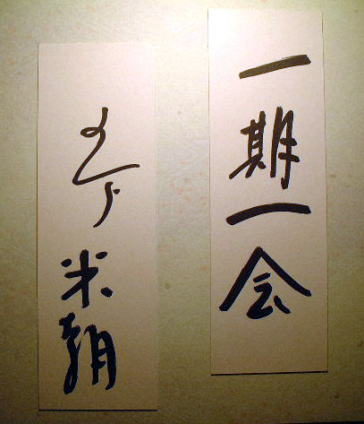 一期一会
米朝